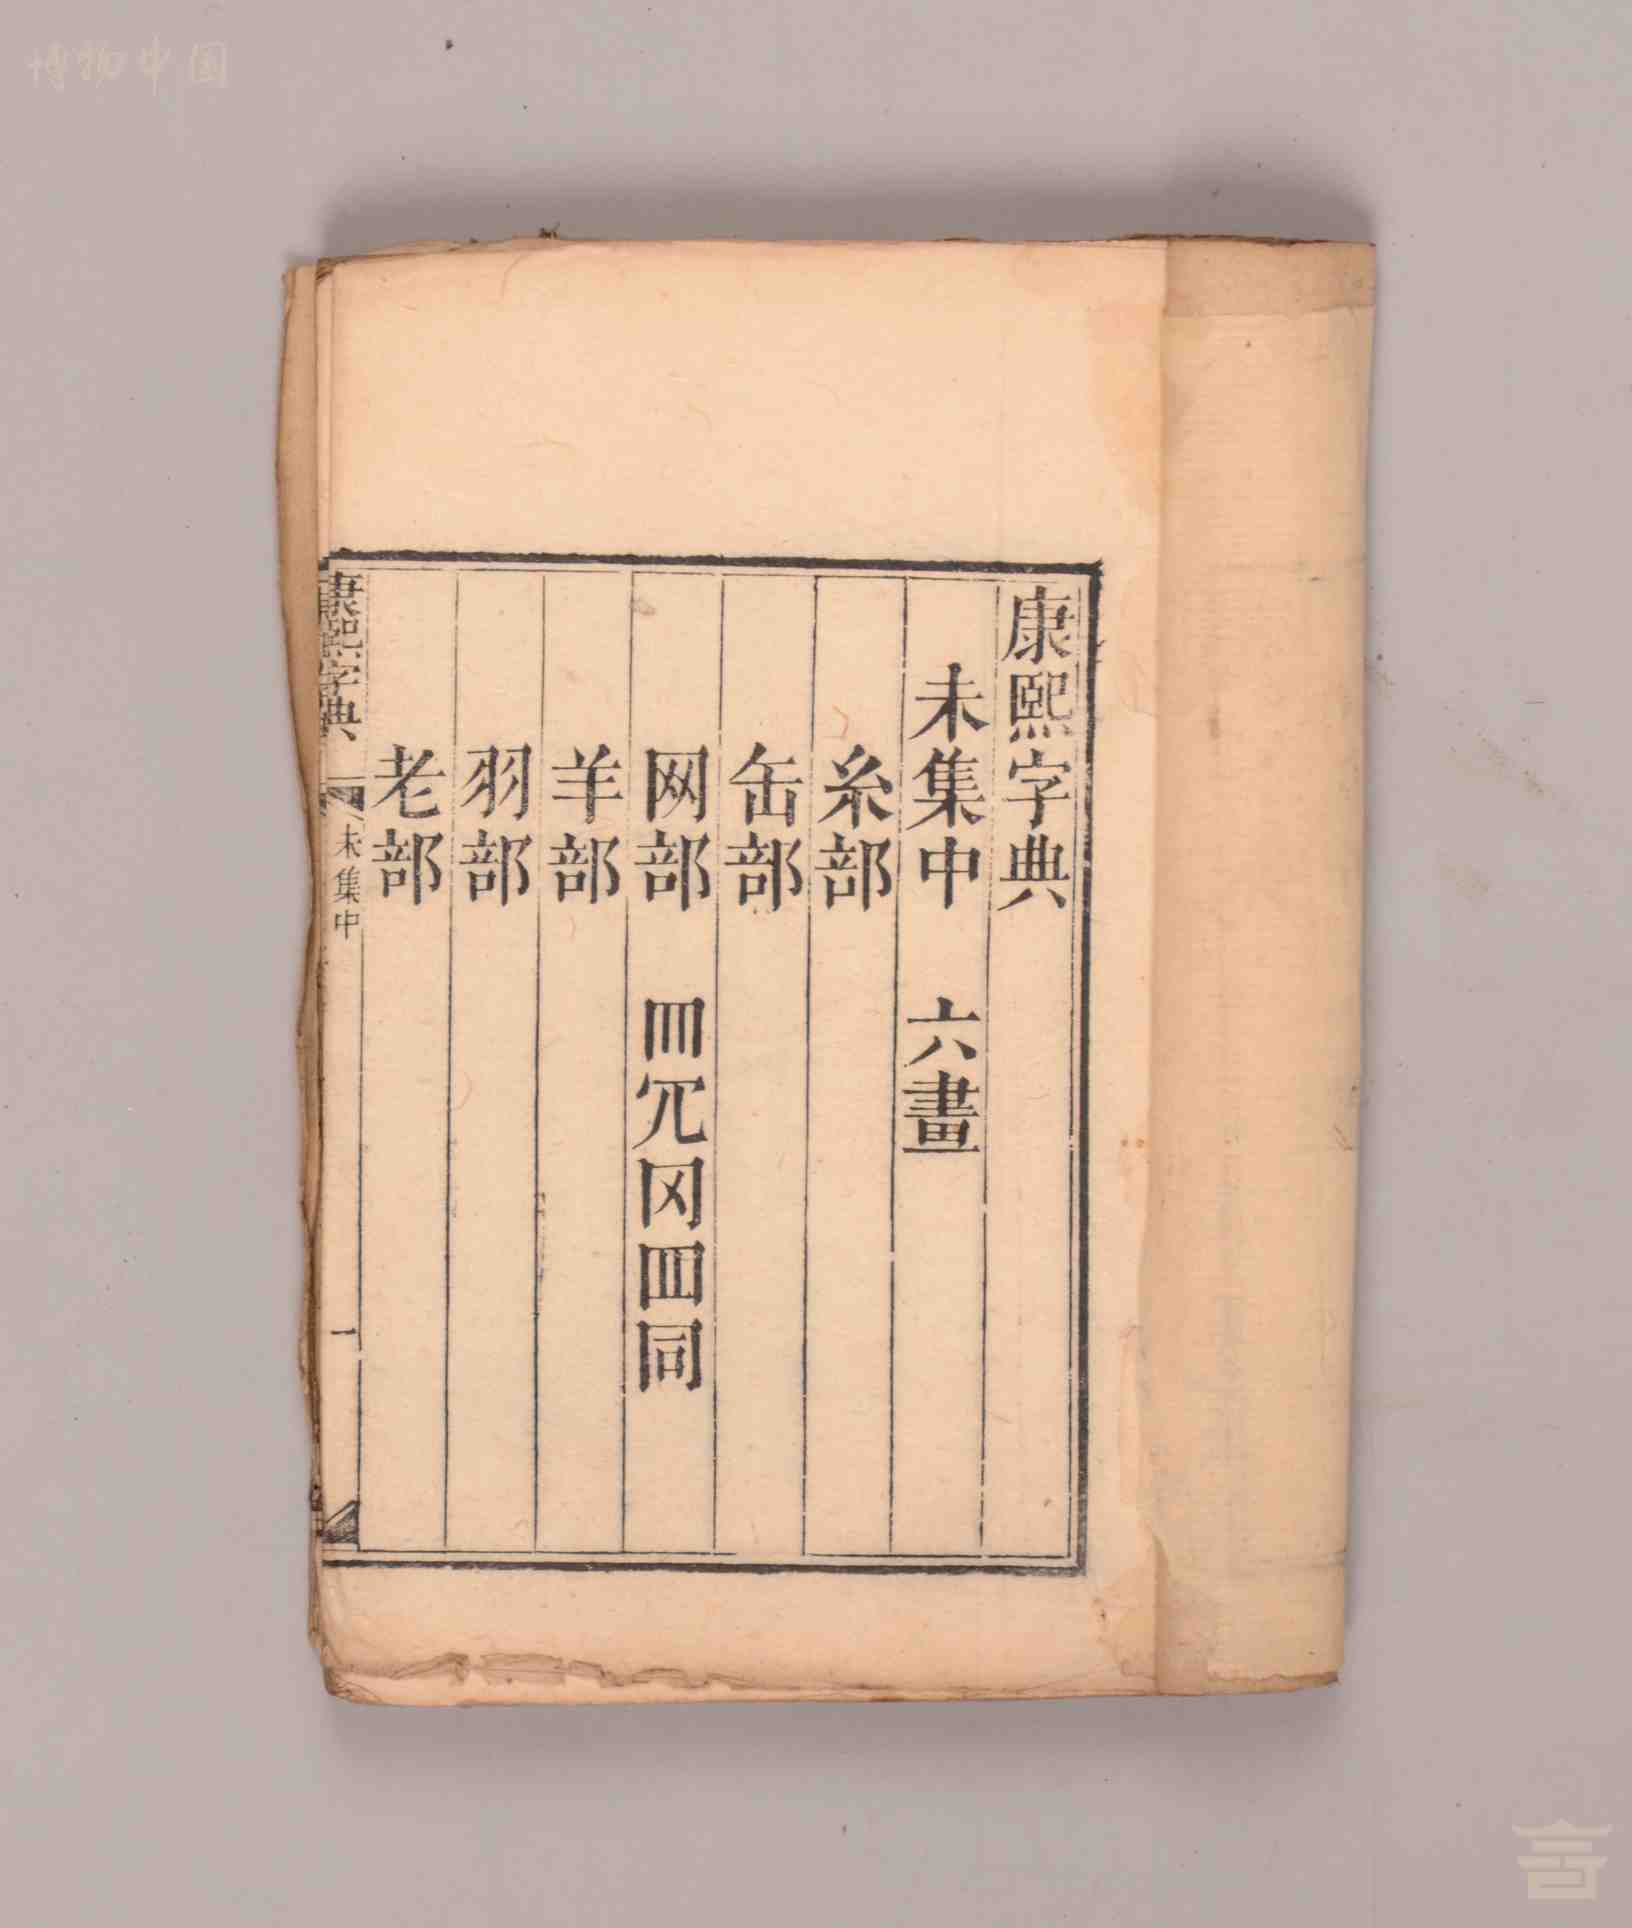 康熙字典
未集中　六畫
糸部
缶部
网部　罒𦉪冈𦉰同
羊部
羽部
老部
康熙字典
未集中
一
博物中国